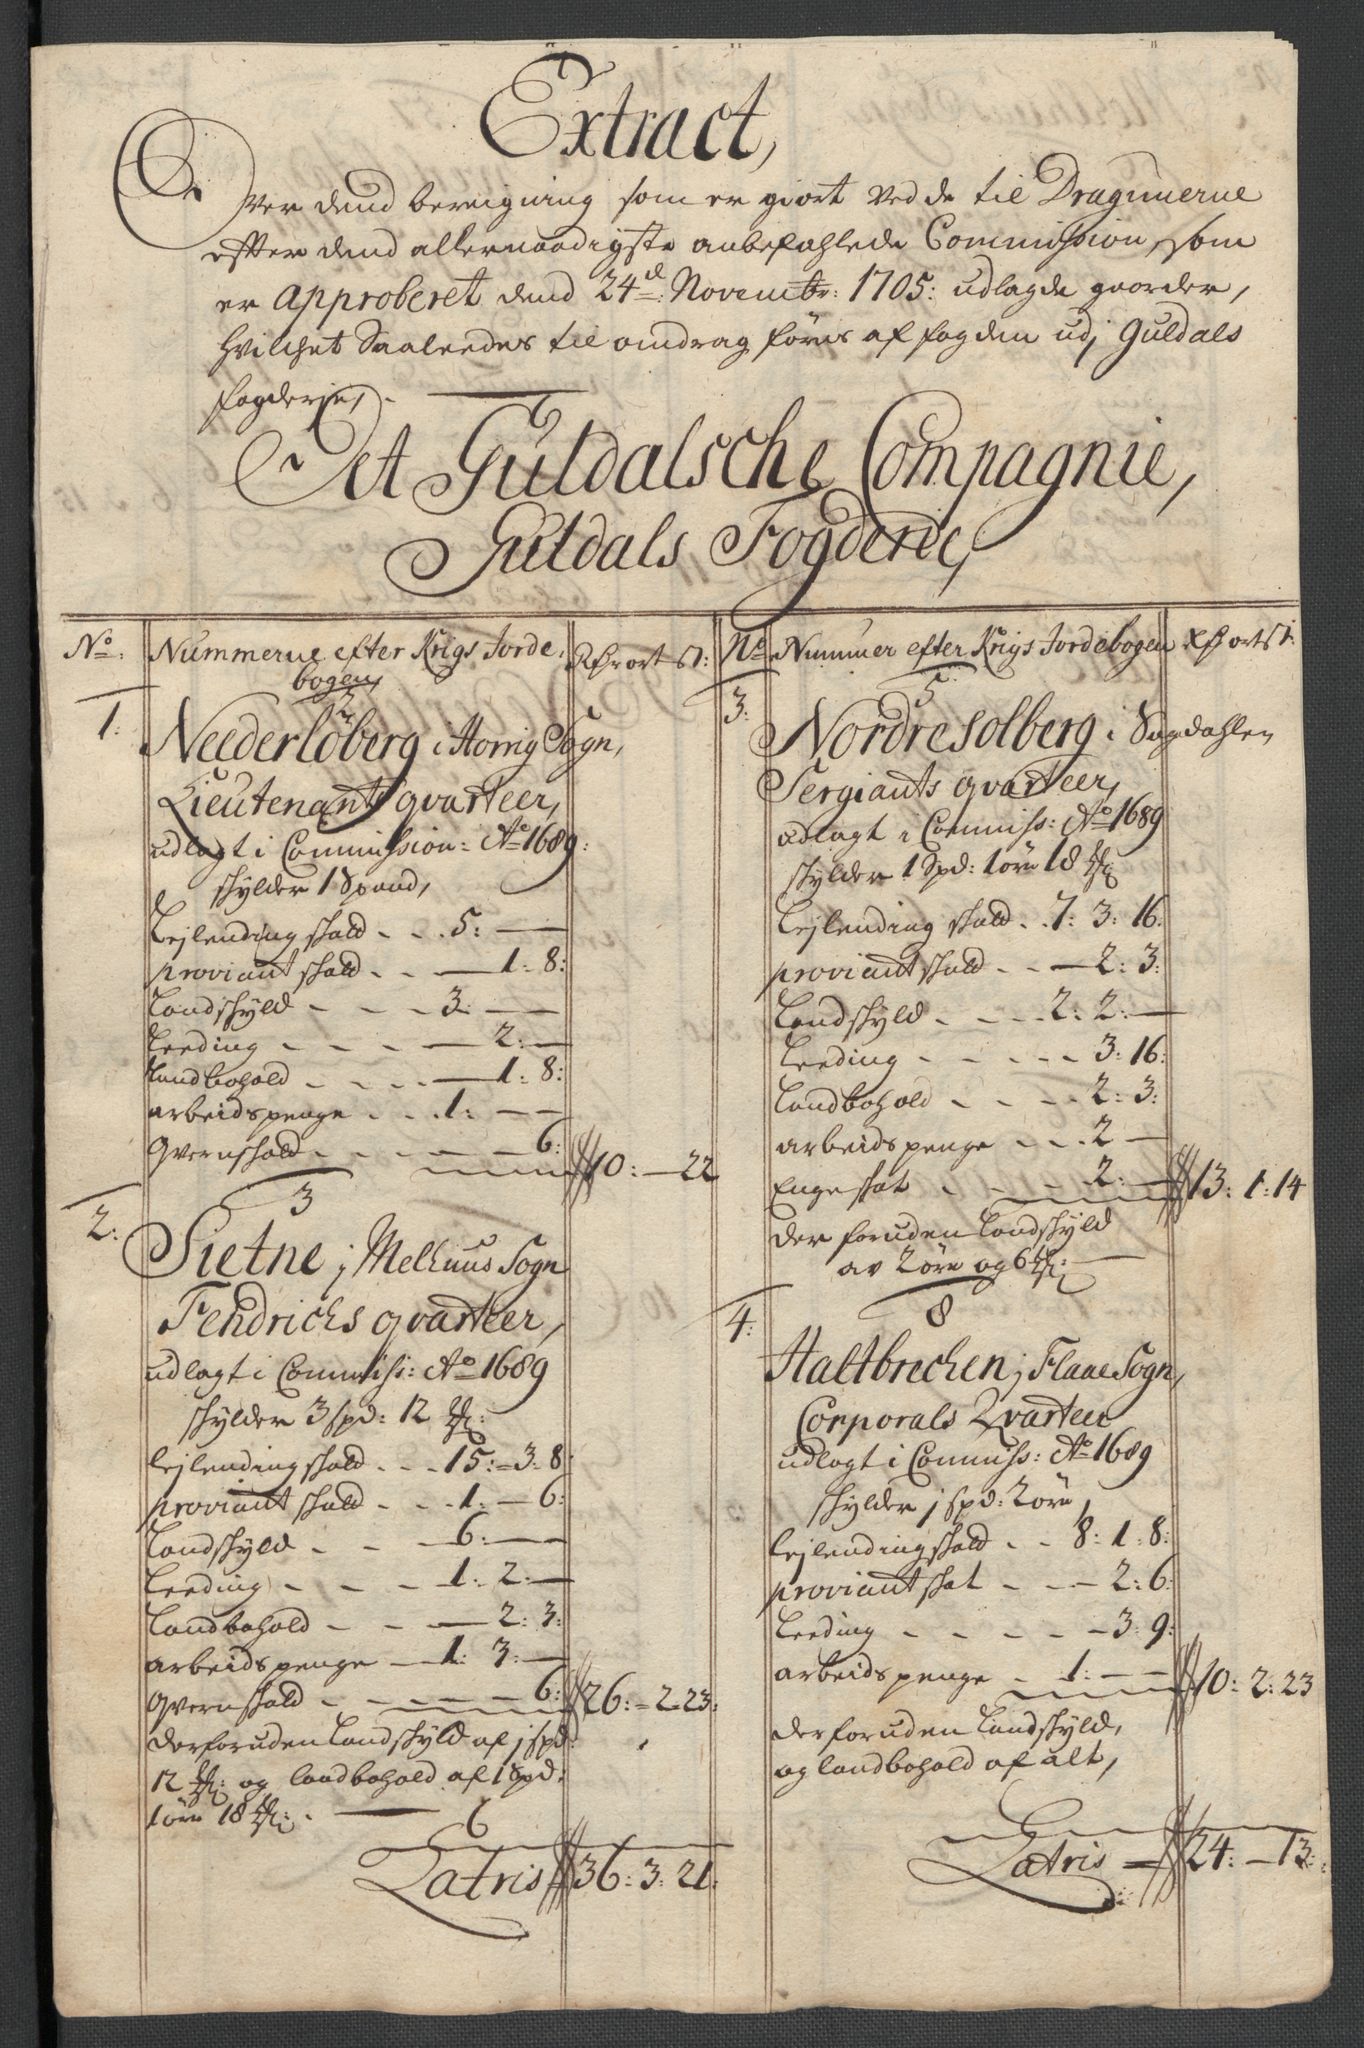 Extract,
Over dend bereigning som er giort ved de til Dragunerne
effter dend allernaadigste anbefahlede Commission, som
er Approberet dend 24d Novembr: 1705: udlagde gaarder,
hvilchet Saaledes til omdrag føris af fogden udj Guldals
fogderie,
Det Guldalsche Compagnie,
Guldals Fogderie,
No: Nummerne efter Krigs Jorde
bogen, Rd ort st:
1: 2
Neederløberg i Horrig Sogn,
Lieutenants qvarteer,
udlagt i Commission: Ao 1689:
skylder 1 Spand,
Lejlending skatt . . . 5: — —
proviant skatt . . — 1: 8:
Landskyld - - - 3: — —
Leeding - - - — 2: —
Landbohold . . . — 1: 8:
arbeidspenge . . . 1: — —
Qvernskatt . . . — — 6: 10: — 22
2: 3
Sietne j Melhuus Sogn
Fendrichs qvarteer,
udlagt i Commiss: Ao 1689
skylder 3 spd: 12
lejlendingskatt . . . 15: 3: 8:
proviant skatt . . . 1: — 6:
Landskyld . . — 6: — —
Leeding - - - 1: 2: —
Landbohold - - — 2: 3:
arbeids penge — 1: 3: —
Qvernskatt - - — — 6: 26: 2: 23:
derforuden Landskyld af j spd:
12 og landbohold af 1 Spd:
1 øre 18
Latris 36: 3: 21:
No. Nummer efter Krigs Jordebogen Rd ort st:
3: 5
Nordre solberg i Sogdahlen
Sergiants qvarteer,
udlagt i Commiss: Ao 1689
skylder 1 Spd: 1 øre 18
Lejlending skatt . . 7: 3: 16:
proviant skatt . . — 2: 3:
Landskyld . . . 2: 2: —
Leeding - - - - 3: 16:
Landbohold - - - 2: 3:
arbeids penge . . . 2 —
Enge skat - - - 2: — 13: 1: 14
der foruden Landskyld
av 2 øre og 6
4: 8
Haltbrechen j Flaae Sogn,
Corporals Qvarteer
udlagt i Commiss: Ao 1689
skylder j spd: 2 øre,
lejlendingskatt . . 8: 1: 8:
proviant skat - - — 2: 6:
Leeding - - - - — 3: 9:
arbeids penge - 1: — — 10: 2: 23
derforuden Landskyld,
og landbohold af alt,
Latris — 24: — 13: